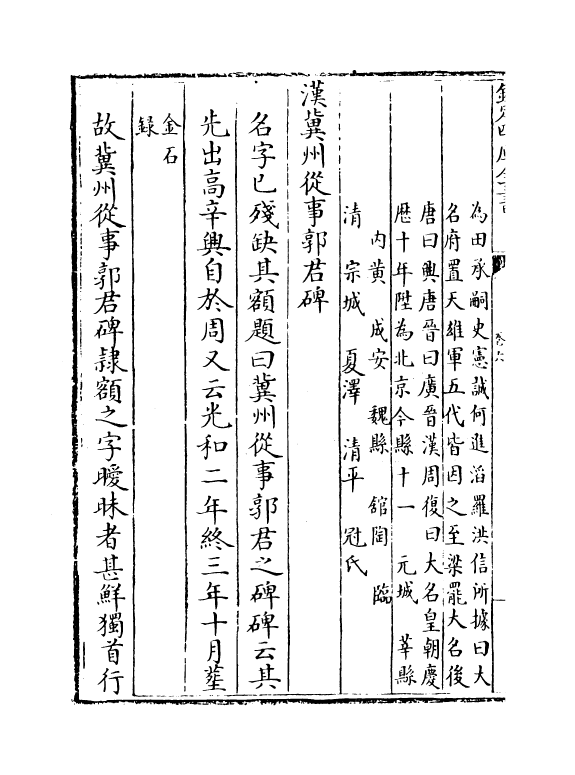 欽定四庫全書
卷六
為田承嗣史憲誠何進滔羅洪信所據曰大
名府置天雄軍五代皆因之至梁罷大名後
唐曰興唐晉曰廣晉漢周復曰大名皇朝慶
厯十年陞為北京今縣十一 元城 莘縣
內黄 成安 魏縣 舘陶 臨
清 宗城 夏澤 清平 冠氏
漢冀州從事郭君碑
名字已殘缺其額題曰冀州從事郭君之碑碑云其
先出高辛興自於周又云光和二年終三年十月塟
金石
録
故冀州從事郭君碑隷額之字曖昧者甚鮮獨首行